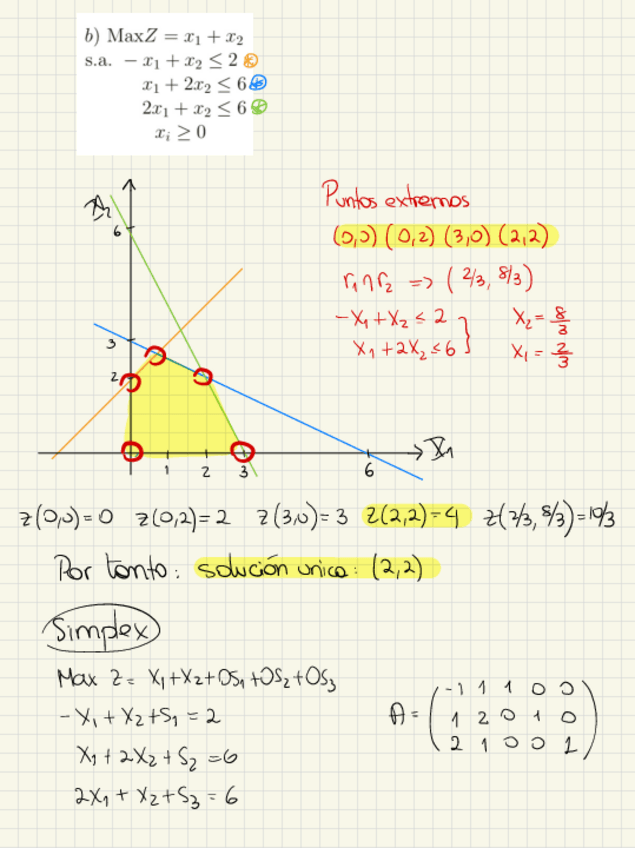 b) MaxZ = x₁ + x₂
s.a. − x₁ + x₂ ≤ 2
x₁ + 2x₂ ≤ 6
2x₁ + x₂ ≤ 6
xᵢ ≥ 0
Puntos extremos
(0,0) (0,2) (3,0) (2,2)
r₁∩r₂ => (2/3, 8/3)
-x₁+x₂ ≤ 2
x₁+2x₂ ≤ 6
x₂ = 8/3
x₁ = 2/3
X₂
6
3
2
1 2 3 6
X₁
z(0,0)=0 z(0,2)=2 z(3,0)=3 z(2,2)=4 z(2/3, 8/3)=10/3
Por tanto: solución unica: (2,2)
Simplex
Max z = x₁+x₂+0s₁+0s₂+0s₃
-x₁+x₂+s₁ = 2
x₁+2x₂+s₂ = 6
2x₁+x₂+s₃ = 6
A =
-1 1 1 0 0
1 2 0 1 0
2 1 0 0 1